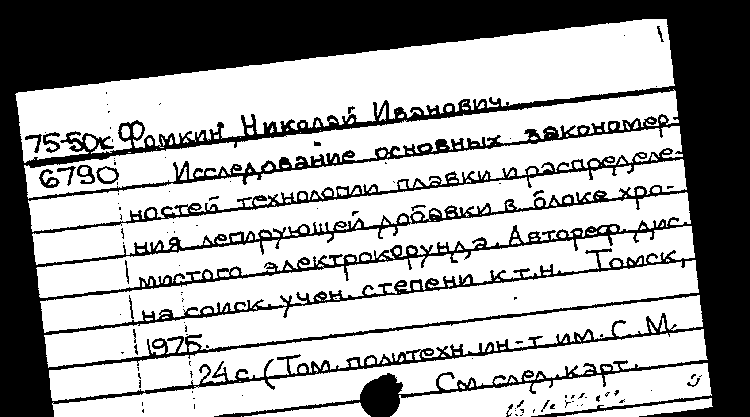 1
75-50к Фомкин, Николай Иванович.
6790 Исследование основных закономер-
ностей технологии плавки и распределе-
ния легирующей добавки в блоке хро-
мистого электрокорунда. Автореф. дис.
на соиск. учен. степени к.т.н. Томск,
1975.
24 с. (Том. политехн. ин-т им. С.М.
См. след. карт.